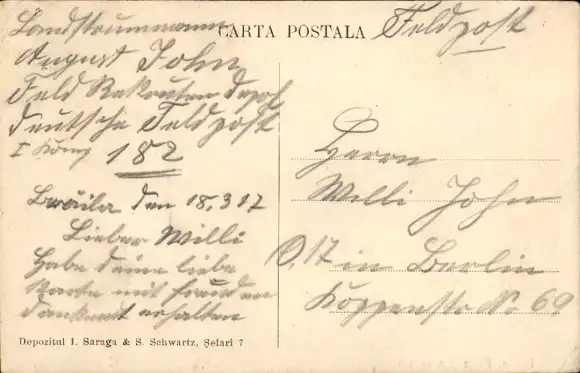 Landsturmmann
August John
Feld Rekruten Depot
deutsche Feldpost
I Komp
182
CARTA POSTALA
Feldpost
Herrn
Willi John
O. 17 in Berlin
Koppenstr No 69
Braila den 18.3.17
Lieber Willi
Habe deine liebe
Karte mit freuden
dankent erhalten
Depozitul I. Saraga & S. Schwartz, Șelari 7